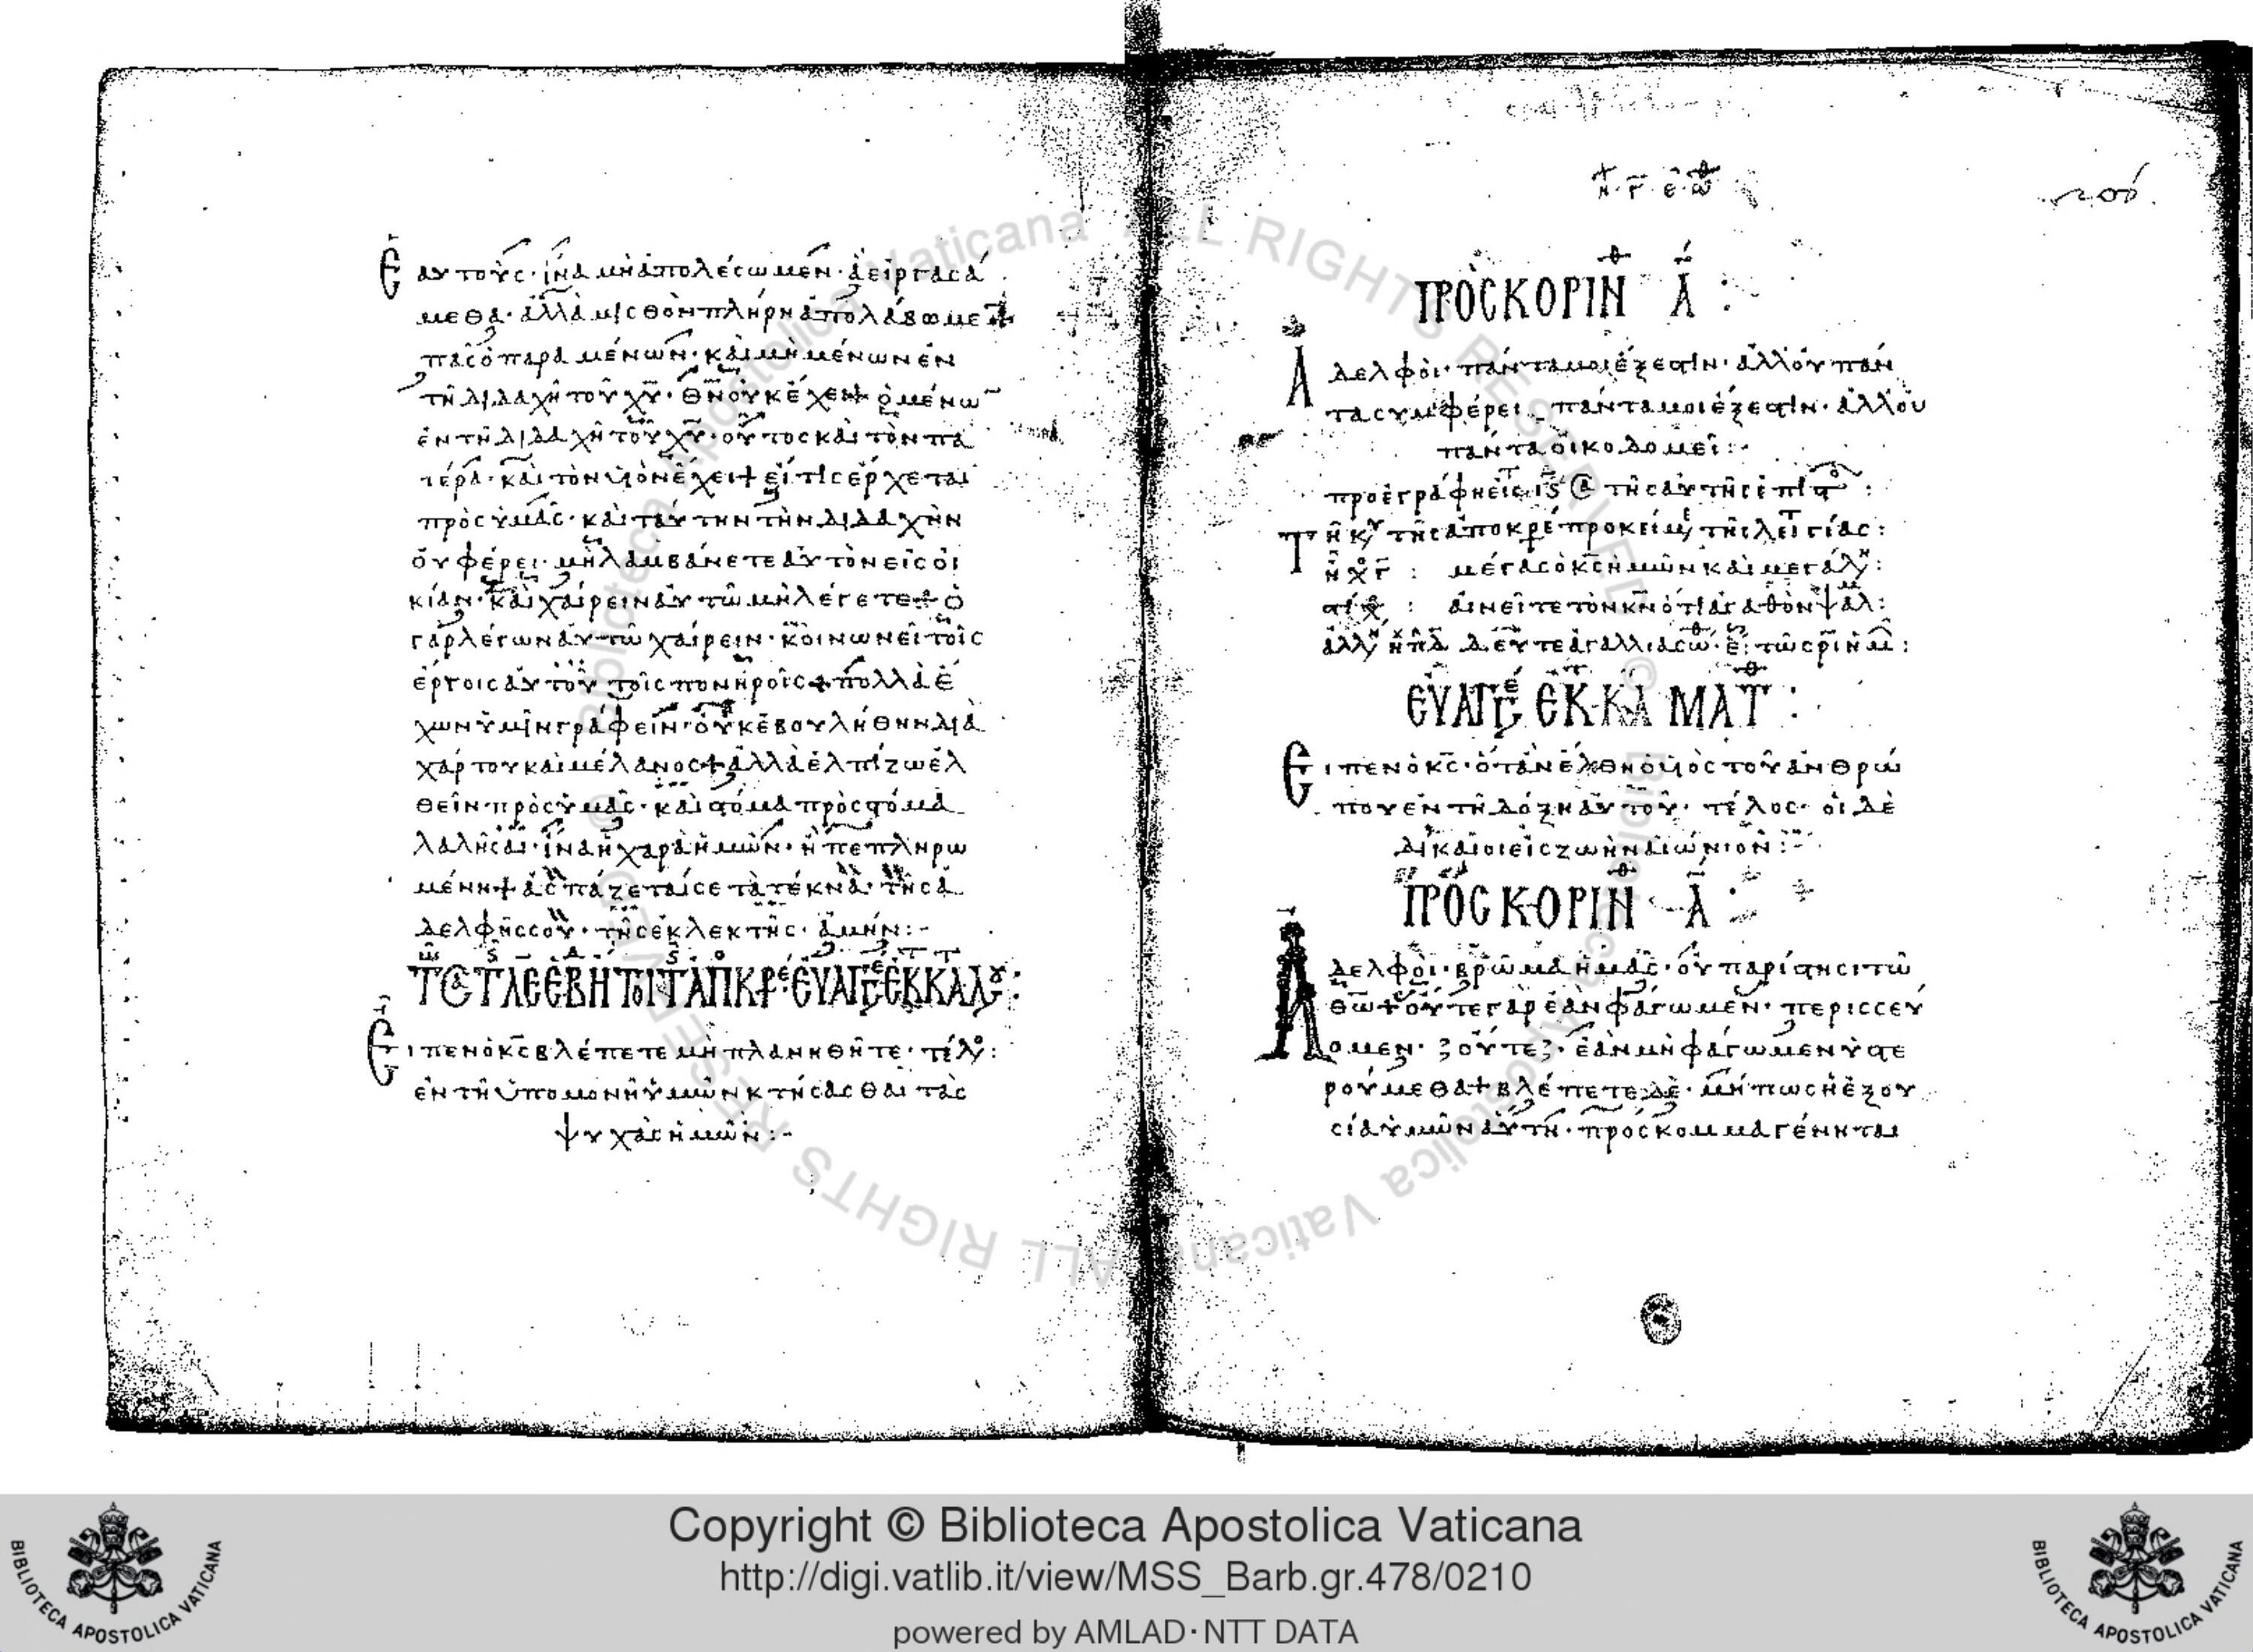 ἑαυτοὺς· ἵνα μὴ ἀπολέσωμεν· ἃ εἰργασά
μεθα· ἀλλὰ μισθὸν πλήρη ἀπολάβωμεν
πᾶς ὁ παραμένων· καὶ μὴ μένων ἐν
τῆ διδαχῆ τοῦ χῦ· θν οὐκ ἔχει + ὁ μένω
ἐν τῆ διδαχῆ τοῦ χῦ· οὗτος καὶ τὸν πα
τέρα· καὶ τὸν υἱὸν ἔχει + εἴ τις ἔρχεται
πρὸς ὑμᾶς· καὶ ταύτην τὴν διδαχὴν
οὐ φέρει· μὴ λαμβάνετε αὐτὸν εἰς οἰ
κίαν· καὶ χαίρειν αὐτῶ μὴ λέγετε + ὁ
γὰρ λέγων αὐτῶ χαίρειν· κοινωνεῖ τοῖς
ἔργοις αὐτοῦ τοῖς πονηροῖς + πολλὰ ἔ
χων ὑμῖν γράφειν· οὐκ ἐβουλήθην διὰ
χάρτου καὶ μέλανος + ἀλλὰ ἐλπίζω ἐλ
θεῖν πρὸς ὑμᾶς· καὶ στόμα πρὸς στόμα
λαλῆσαι· ἵνα ἡ χαρὰ ἡμῶν· ἦ πεπληρω
μένη + ἀσπάζεταί σε τὰ τέκνα· τῆς ἀ
δελφῆς σου· τῆς ἐκλεκτῆς· ἀμήν:-
Εἶπεν ὁ κς βλέπετε μὴ πλανηθῆτε· τέλ:
ἐν τῆ ὑπομονῆ ὑμῶν κτήσασθαι τὰς
ψυχὰς ἡμῶν:-
ΠΡΟΣ ΚΟΡΙΝΘ Α:
Ἀδελφοὶ· πάντα μοι ἔξεστιν· ἀλλ' οὐ πάν
τα συμφέρει πάντα μοι ἔξεστιν· ἀλλ' οὐ
πάντα οἰκοδομεῖ:-
μέγας ὁ κς ἡμῶν καὶ μεγάλ:
στίχ: αἰνεῖτε τὸν κν ὅτι ἀγαθὸν ψαλ:
ΕΥΑΓΓΕ ΕΚ Κ ΜΑΤΘ:
Εἶπεν ὁ κς· ὅταν ἔλθη ὁ υἱὸς τοῦ ἀνθρώ
που ἐν τῆ δόξη αὐτοῦ· τέλος· οἱ δὲ
δίκαιοι εἰς ζωὴν αἰώνιον:-
ΠΡΟΣ ΚΟΡΙΝΘ Α:
Ἀδελφοὶ· βρῶμα ἡμᾶς· οὐ παρίστησι τῶ
θω + οὔτε γὰρ ἐὰν φάγωμεν· περισσεύ
ομεν· οὔτε· ἐὰν μὴ φάγωμεν ὑστε
ρούμεθα + βλέπετε δὲ· μή πως ἡ ἐξου
σία ὑμῶν αὕτη· πρόσκομμα γένηται
Copyright © Biblioteca Apostolica Vaticana
http://digi.vatlib.it/view/MSS_Barb.gr.478/0210
powered by AMLAD·NTT DATA
BIBLIOTECA APOSTOLICA VATICANA
BIBLIOTECA APOSTOLICA VATICANA